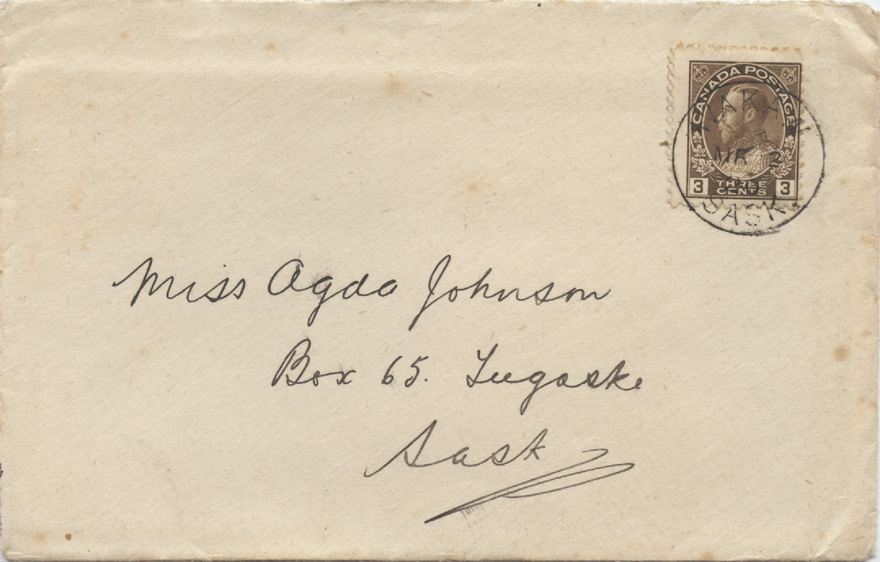 CANADA POSTAGE
MR 2
3 THREE CENTS 3
SASK
Miss Agda Johnson
Box 65. Tugaske
Sask